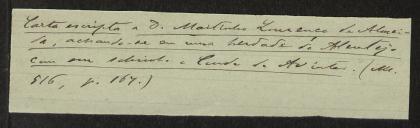 Carta escripta a D. Martinho Lourenço de Almei-
da, achando-se em uma herdade do Alentejo
com seu sobrinho o Conde de Avintes. (Ms.
516, p. 164.)